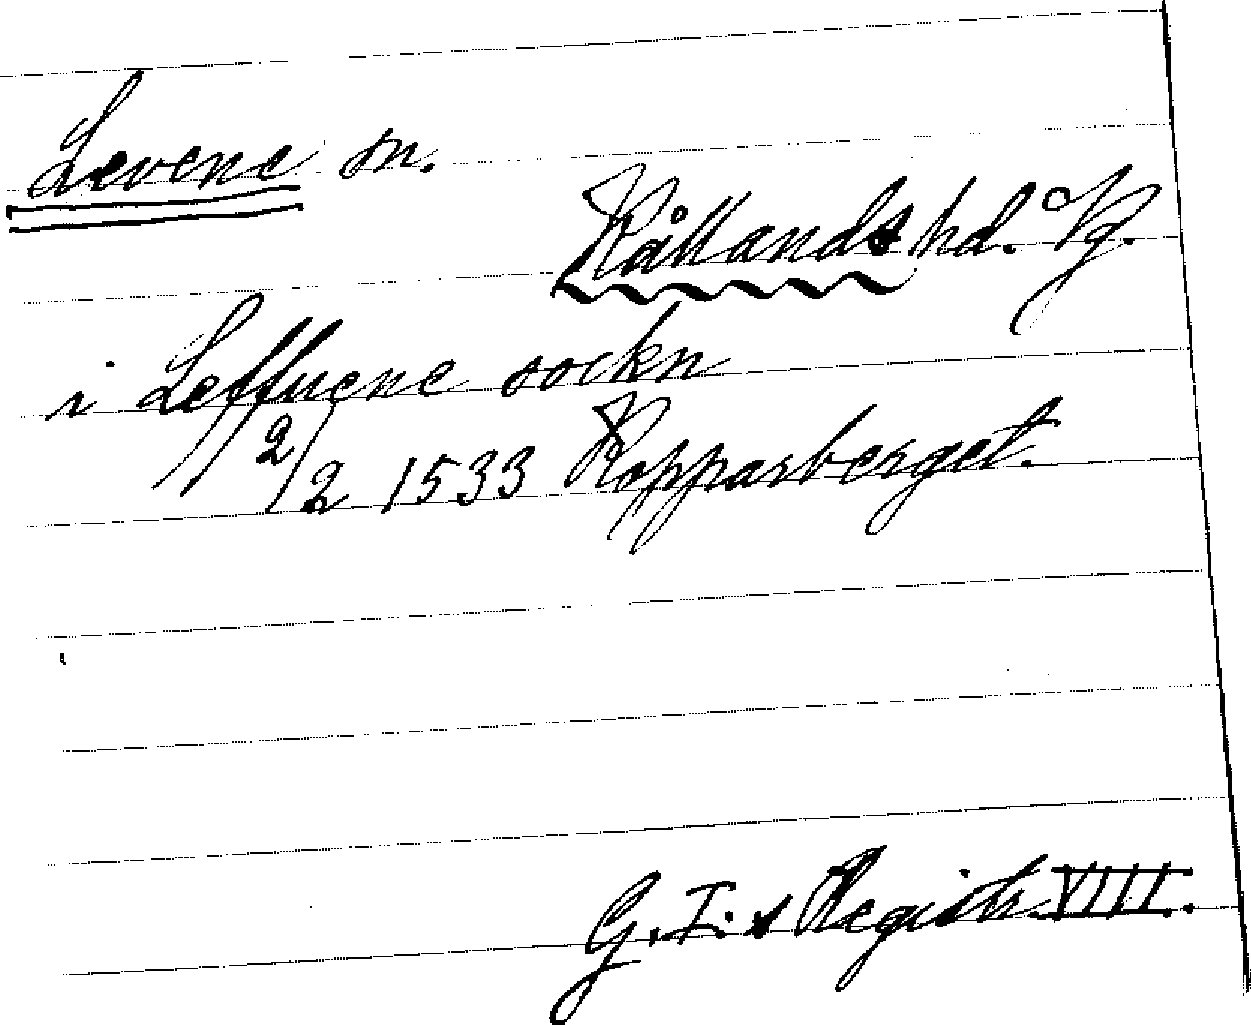 Levene sn.
Kållands hd. Vg.
i Leffuene sockn
2/2 1533 Kopparberget.
G. I:s Registr. VIII.